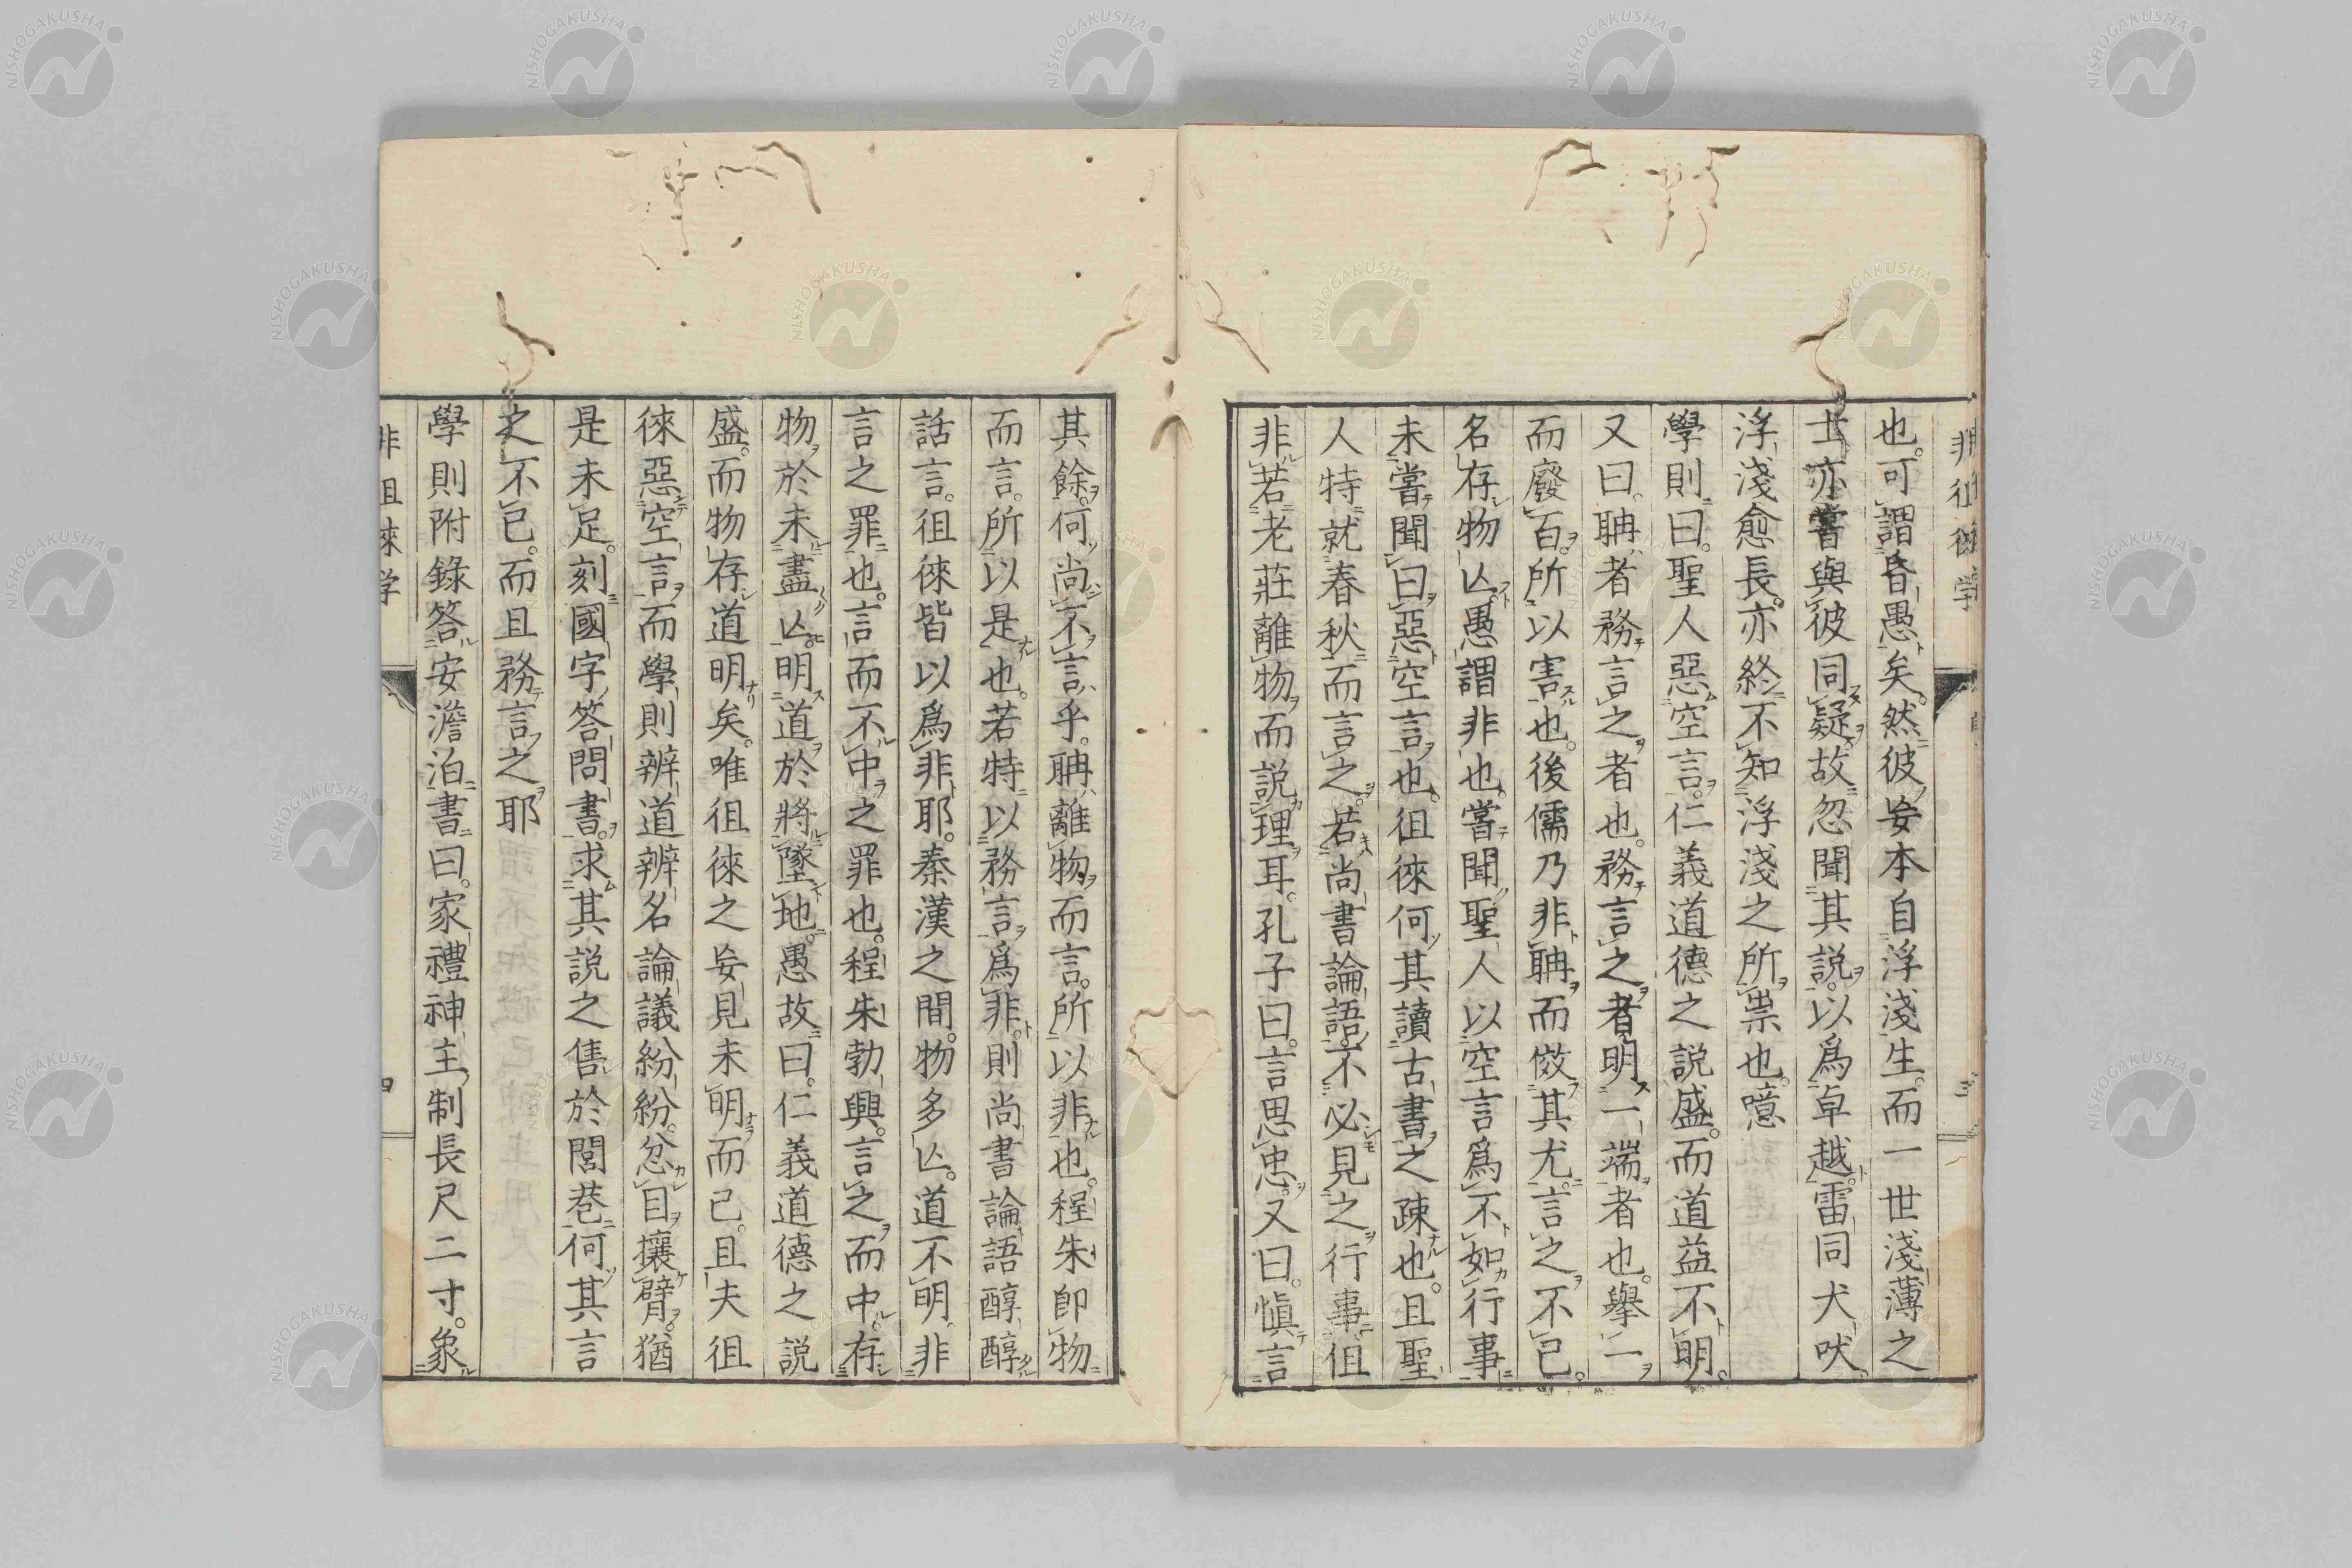 也。可謂昏愚矣。然彼妄本自浮淺生。而一世淺薄之
士亦嘗與彼同疑。故忽聞其説。以爲卓越。雷同犬吠。
浮淺愈長。亦終不知浮淺之所祟也。噫
學則曰。聖人惡空言。仁義道德之説盛。而道益不明。
又曰。聃者務言之者也。務言之者明一端者也。擧一
而廢百。所以害也。後儒乃非聃而傚其尤。言之不已。
名存物亾。愚謂非也。嘗聞聖人以空言爲不如行事。
未嘗聞曰惡空言也。徂徠何其讀古書之疎也。且聖
人特就春秋而言之。若尚書論語。不必見之行事。但
非若老莊離物而説理耳。孔子曰。言思忠。又曰。愼言
其餘。何尚不言乎。聃離物而言。所以非也。程朱卽物
而言。所以是也。若特以務言爲非。則尚書論語醇醇
話言。徂徠皆以爲非耶。秦漢之間。物多亾。道不明。非
言之罪也。言而不中之罪也。程朱勃興。言之而中。存
物於未盡亾。明道於將墜地。愚故曰。仁義道德之説
盛。而物存道明矣。唯徂徠之妄見未明而已。且夫徂
徠惡空言而學則辨道辨名論議紛紛。忿目攘臂。猶
是未足。刻國字答問書。求其説之售於閭巷。何其言
之不已。而且務言之耶
學則附錄答安澹泊書曰。家禮神主制長尺二寸。象
非徂徠学
NISHOGAKUSHA